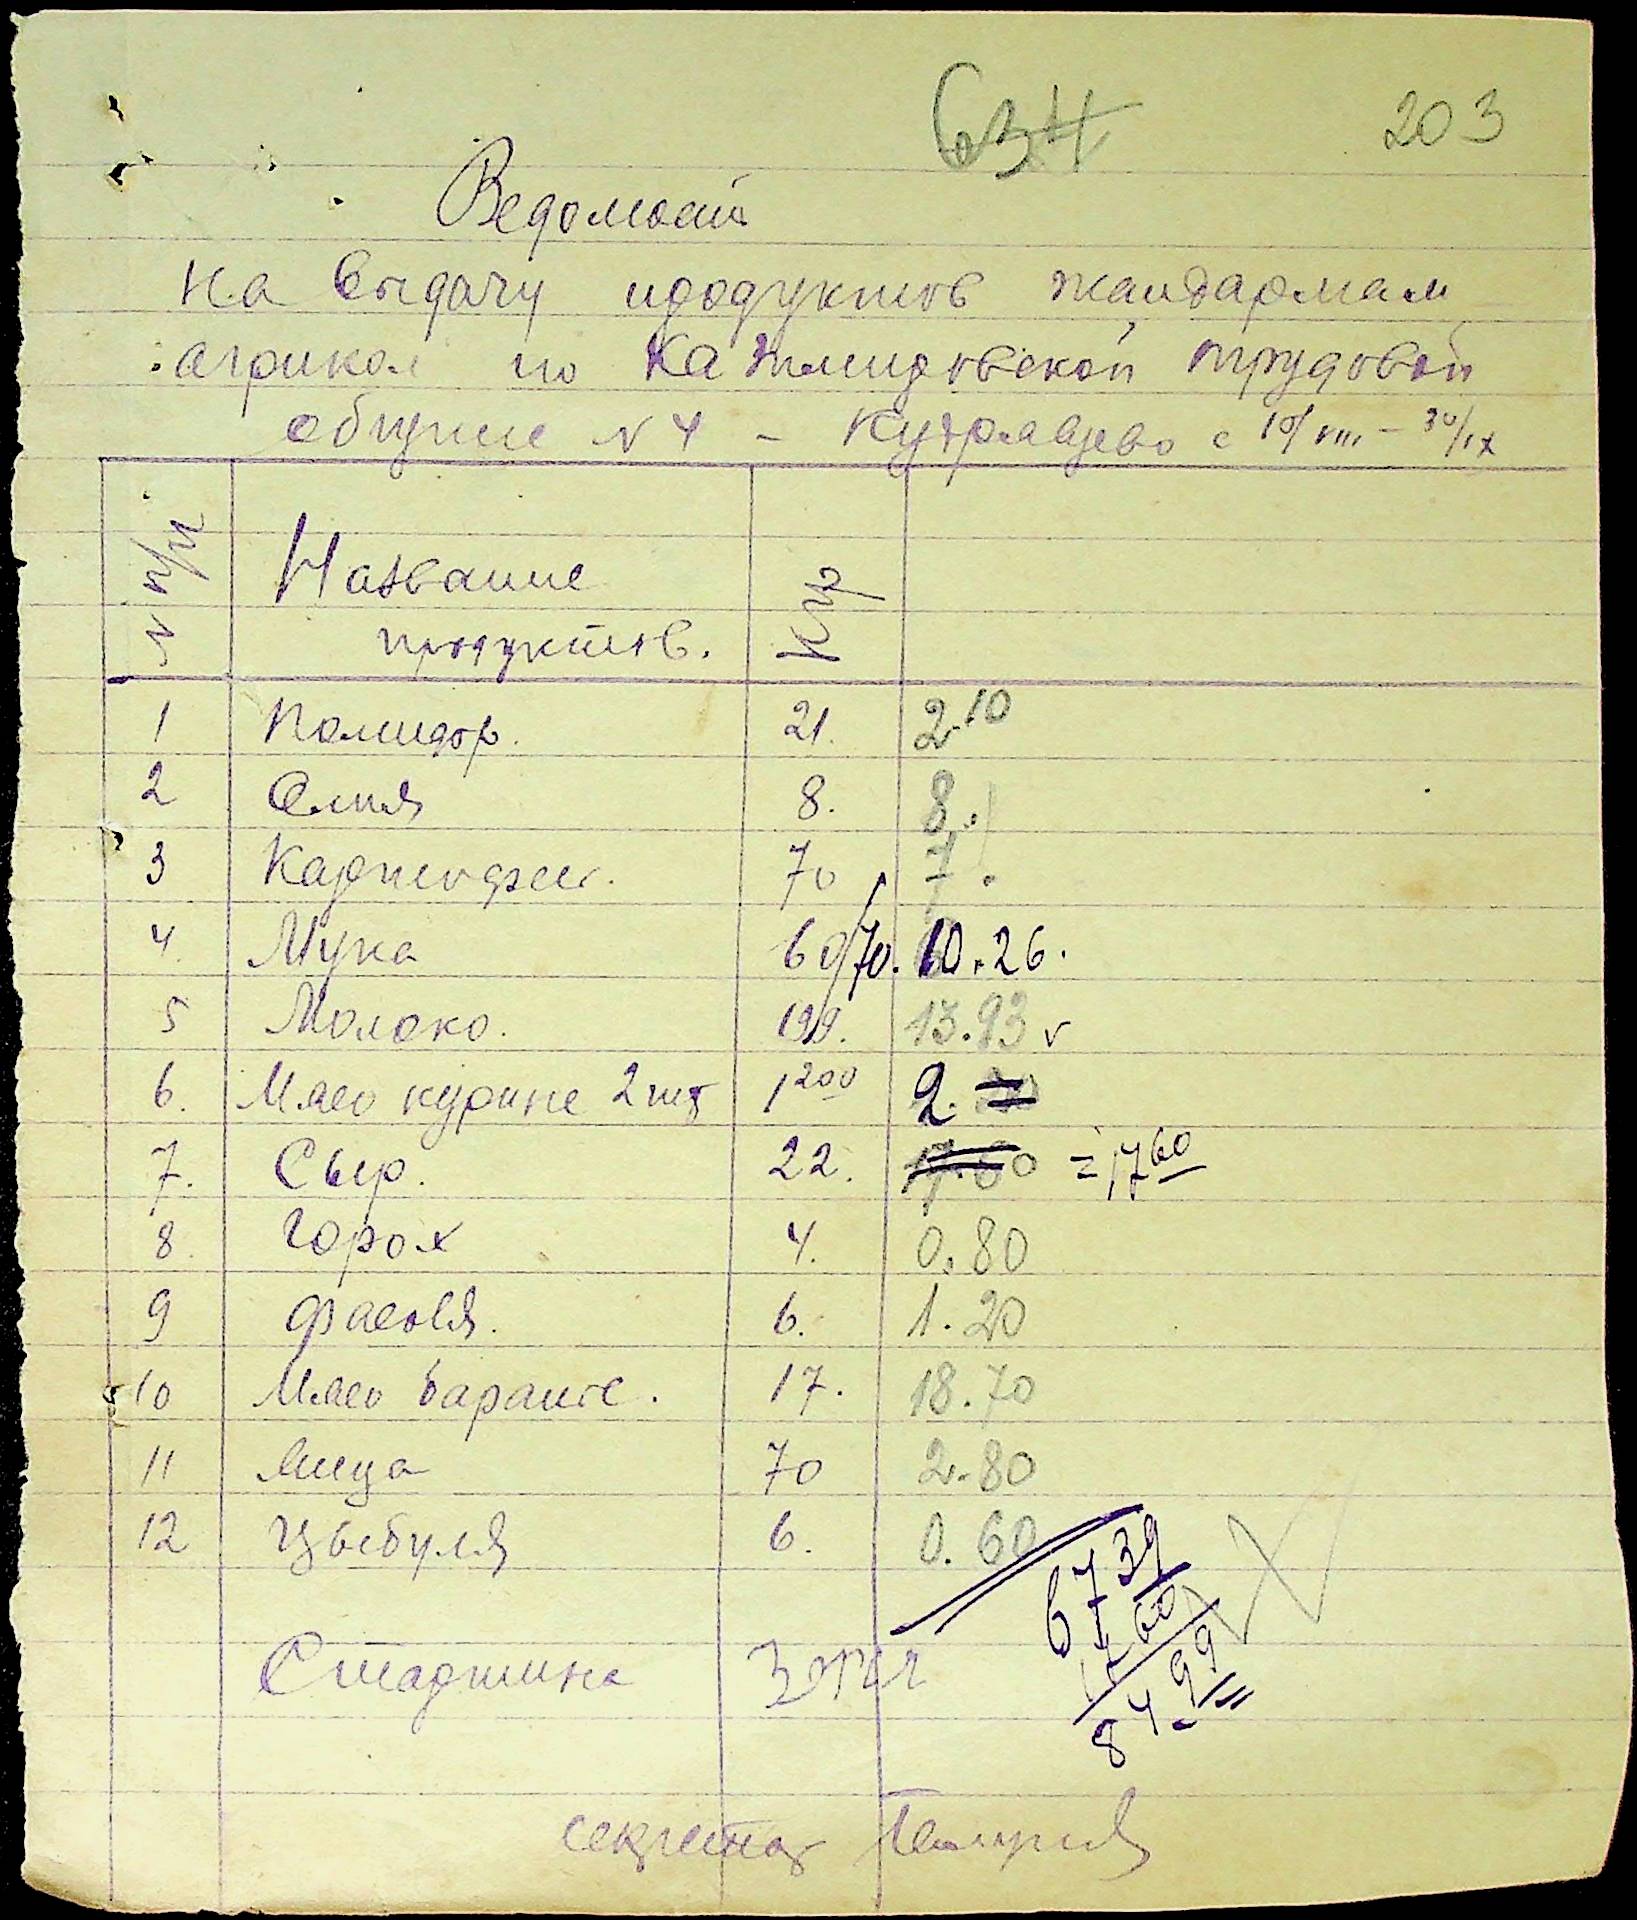 634 203
Ведомость
на выдачу продуктов жандармам
агрикол по трудовой
общине N 4 – Кудрявцево с 10/VIII – 30/IX
N п/п Название продуктов. Кгр
1 Помидор. 21. 2.10
2 Олия 8. 8.
3 Картофел. 70 7.
4. Мука 60/70. 10.26.
5 Молоко. 199. 13.93 v
6. Мясо курине 2 шт 1 200 2.
7. Сыр. 22. 17.60 = 17 60
8. Горох 4. 0.80
9 Фасоля. 6. 1.20
10 Мясо баранге. 17. 18.70
11 Яица 70 2.80
12 Цыбуля 6. 0.60
67 39
17 60
84.99
Старшина
секретар